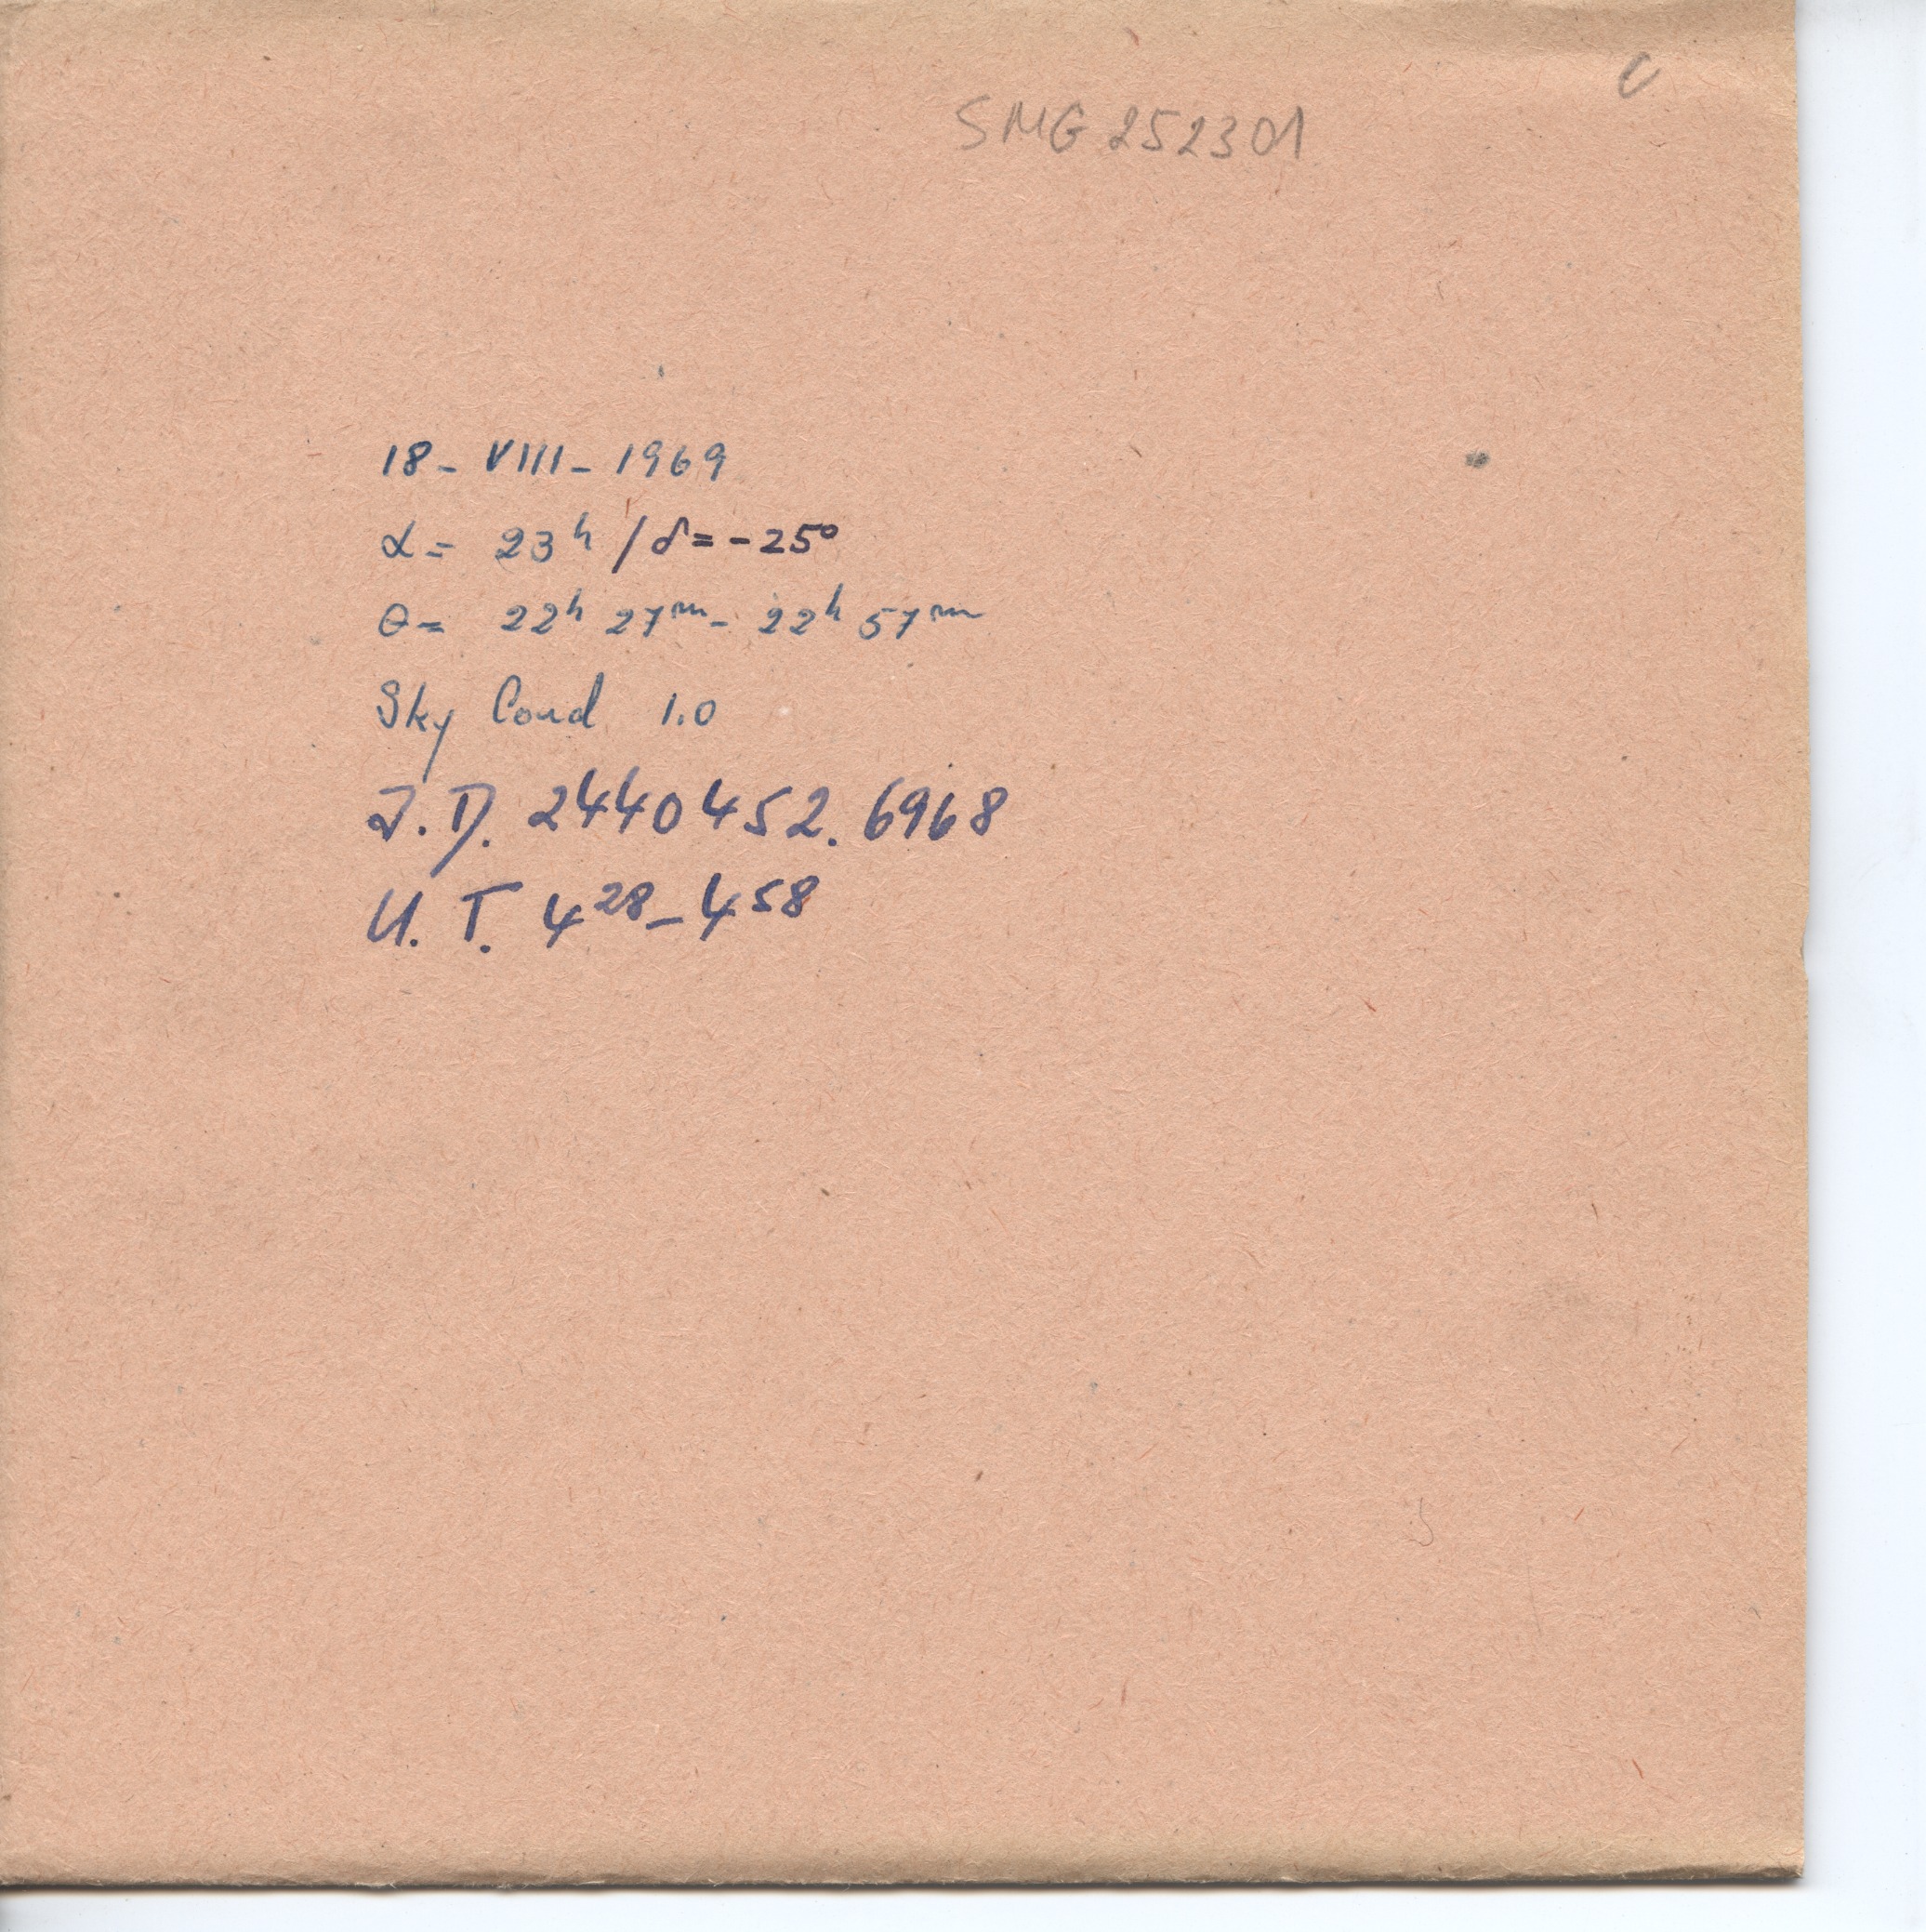 SMG 252301
18- VIII- 1969
α= 23ʰ / δ= -25°
θ= 22ʰ 27ᵐ- 22ʰ 57ᵐ
Sky Cond 1.0
J.D. 2440452.6968
U.T. 4²⁸-4⁵⁸